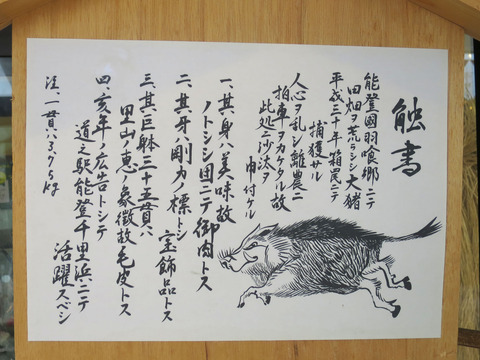 触書
能登國羽喰郷ニテ
田畑ヲ荒ラシシ大猪
平成三十年箱罠ニテ
捕獲サル
人心ヲ乱シ離農ニ
拍車ヲカケタル故
此処ニ沙汰ヲ
申付ケル
一、其身ハ美味故
ノトシシ団ニテ御肉トス
二、其牙ハ剛力ノ標トシ
宝飾品トス
三、其巨躰三十五貫ハ
里山ノ恵ノ象徴故毛皮トス
四、亥年ノ広告トシテ
道之駅能登千里浜ニテ
活躍スベシ
注、一貫ハ3.75kg